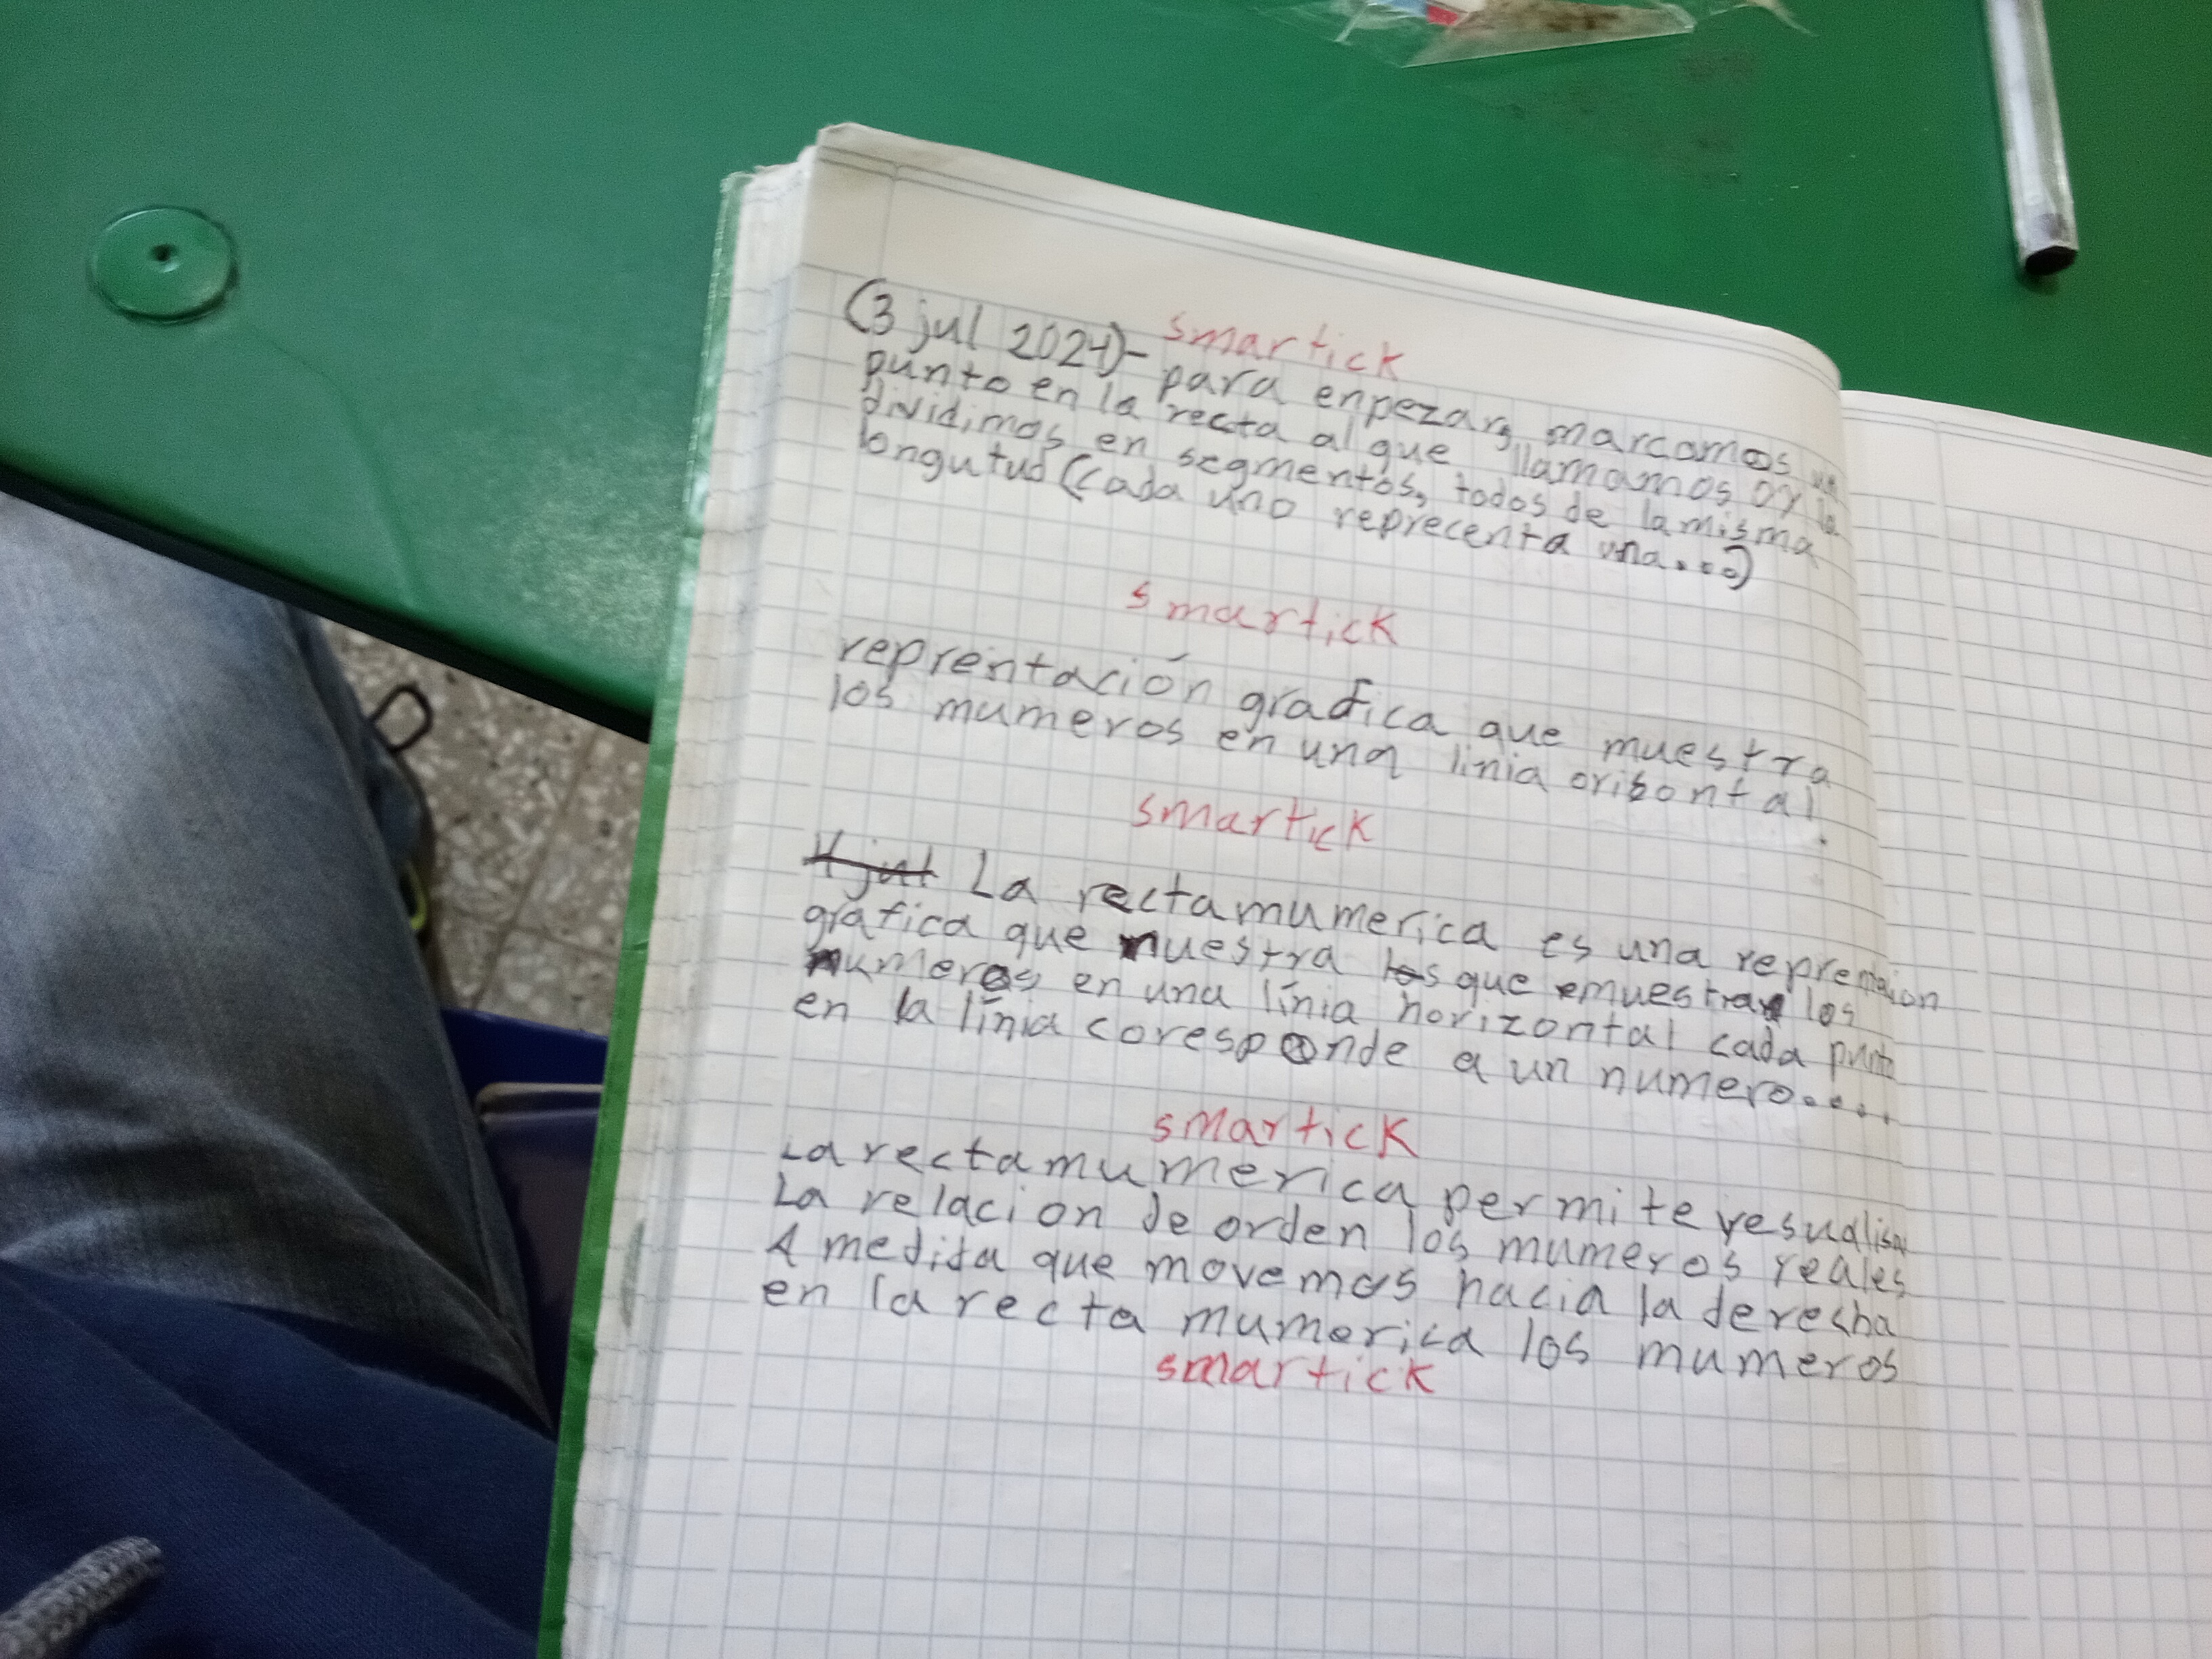 smartick
(3 jul 2021)- para enpezar, marcamos un
punto en la recta al que llamamos 0 y la
dividimos en segmentos, todos de la misma
longutud (cada uno reprecenta una...)
smartick
reprentación grafica que muestra
los mumeros en una linia orizontal.
smartick
4 jul La recta mumerica es una
grafica que muestra los que emuestran los
numeros en una línia horizontal cada punto
en la línia coresponde a un numero....
smartick
La recta mumerica permite vesualisar
La relacion de orden los mumeros reales
A medida que movemos hacia la derecha
en la recta mumerica los mumeros
smartick